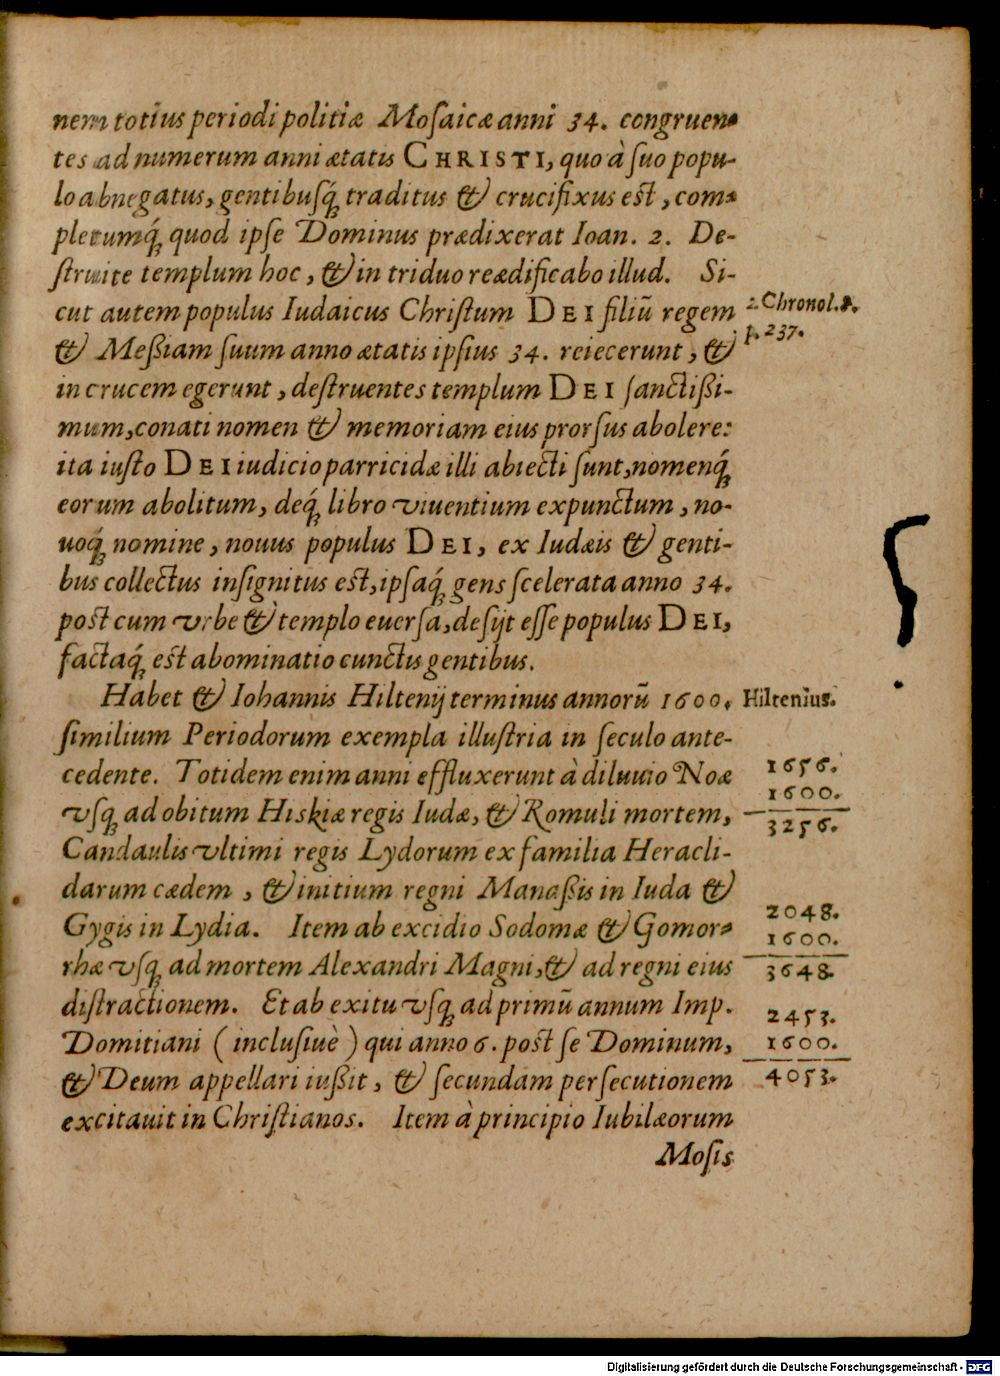 nem totius periodi politiæ Mosaicæ anni 34. congruen-
tes ad numerum anni ætatis CHRISTI, quo à suo popu-
lo abnegatus, gentibusq́; traditus & crucifixus est, com-
pletumq́; quod ipse Dominus prædixerat Ioan. 2. De-
struite templum hoc, & in triduo reædificabo illud. Si-
cut autem populus Iudaicus Christum DEI filiũ regem
2. Chronol. &.
& Meßiam suum anno ætatis ipsius 34. reiecerunt, &
p. 237.
in crucem egerunt, destruentes templum DEI sanctißi-
mum, conati nomen & memoriam eius prorsus abolere:
ita iusto DEI iudicio parricidæ illi abiecti sunt, nomenq́;
eorum abolitum, deq́; libro viuentium expunctum, no-
uoq́; nomine, nouus populus DEI, ex Iudæis & genti-
bus collectus insignitus est, ipsaq́; gens scelerata anno 34.
post cum vrbe & templo euersa, desijt esse populus DEI,
factaq́; est abominatio cunctis gentibus.
Habet & Iohannis Hiltenij terminus annorũ 1600.
Hiltenius.
similium Periodorum exempla illustria in seculo ante-
cedente. Totidem enim anni effluxerunt à diluuio Noæ
1656.
1600.
vsq; ad obitum Hiskiæ regis Iudæ, & Romuli mortem,
3256.
Candaulis vltimi regis Lydorum ex familia Heracli-
darum cædem, & initium regni Manaßis in Iuda &
Gygis in Lydia. Item ab excidio Sodomæ & Gomor-
2048.
1600.
rhæ vsq; ad mortem Alexandri Magni, & ad regni eius
3648.
distractionem. Et ab exitu vsq; ad primũ annum Imp.
2453.
Domitiani (inclusiuè) qui anno 6. post se Dominum,
1600.
& Deum appellari iußit, & secundam persecutionem
4053.
excitauit in Christianos. Item à principio Iubilæorum
Mosis
Digitalisierung gefördert durch die Deutsche Forschungsgemeinschaft - DFG